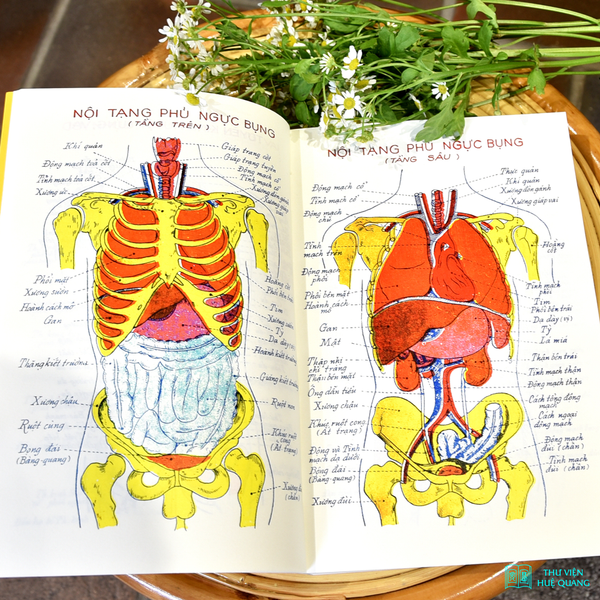 NỘI TẠNG PHỦ NGỰC BỤNG
(TẦNG TRÊN)
Khí quản
Động mạch toả cốt
Tĩnh mạch toả cốt
Xương ức
Giáp trạng cốt
Giáp trạng tuyến
Động mạch cổ
Tĩnh mạch cổ
Xương đòn gánh
Xương giáp vai
Phổi mặt
Xương sườn
Hoành cách mô
Gan
Thăng kiết trường
Xương chậu
Ruột cùng
Bọng đái
(Bàng-quang)
Hoành cốt
Phổi bên trái
Tim
Xương sườn
Tỳ
Dạ dày
Hoành kiết trường
Giáng kiết trường
Ruột non
Khúc ruột cong
(Ất tràng)
Xương đùi
(chân)
NỘI TẠNG PHỦ NGỰC BỤNG
(TẦNG SÂU)
Động mạch cổ
Tĩnh mạch cổ
Động mạch chủ
Tĩnh mạch trên
Động mạch phổi
Phổi bên mặt
Hoành cách mô
Gan
Mật
Thập nhị chỉ tràng
Thận bên mặt
Ống dẫn tiểu
Xương chậu
Khúc ruột cong
(Ất tràng)
Động và Tĩnh
mạch da dưới
Bọng đái
(Bàng-quang)
Xương đùi
Thực quản
Khí quản
Xương đòn gánh
Xương giáp vai
Hoàng cốt
Tĩnh mạch phổi
Tim
Phổi bên trái
Dạ dày
Tỳ
Lá mía
Thận bên trái
Tĩnh mạch thận
Động mạch thận
Cách tổng động mạch
Cách ngoại động mạch
Động mạch đùi (chân)
Tĩnh mạch đùi (chân)
THƯ VIỆN
HUỆ QUANG